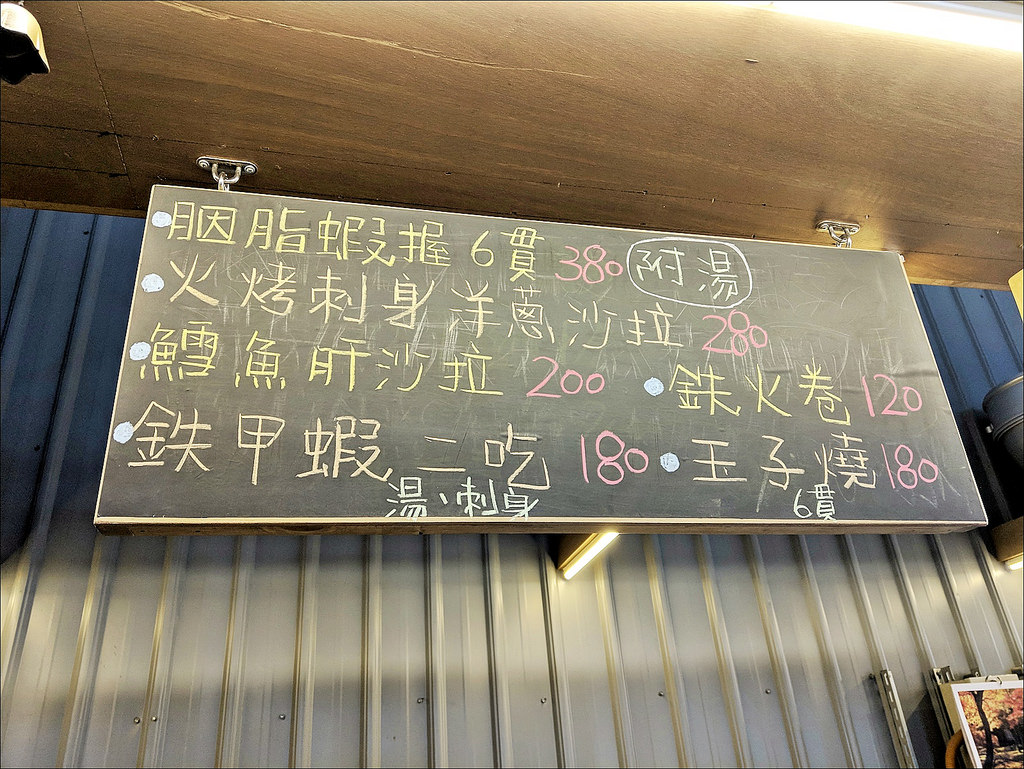 胭脂蝦握6貫380 附湯
火烤刺身洋蔥沙拉280
鱈魚肝沙拉200
鉄火巻120
鉄甲蝦二吃180
湯、刺身
玉子燒180
6貫